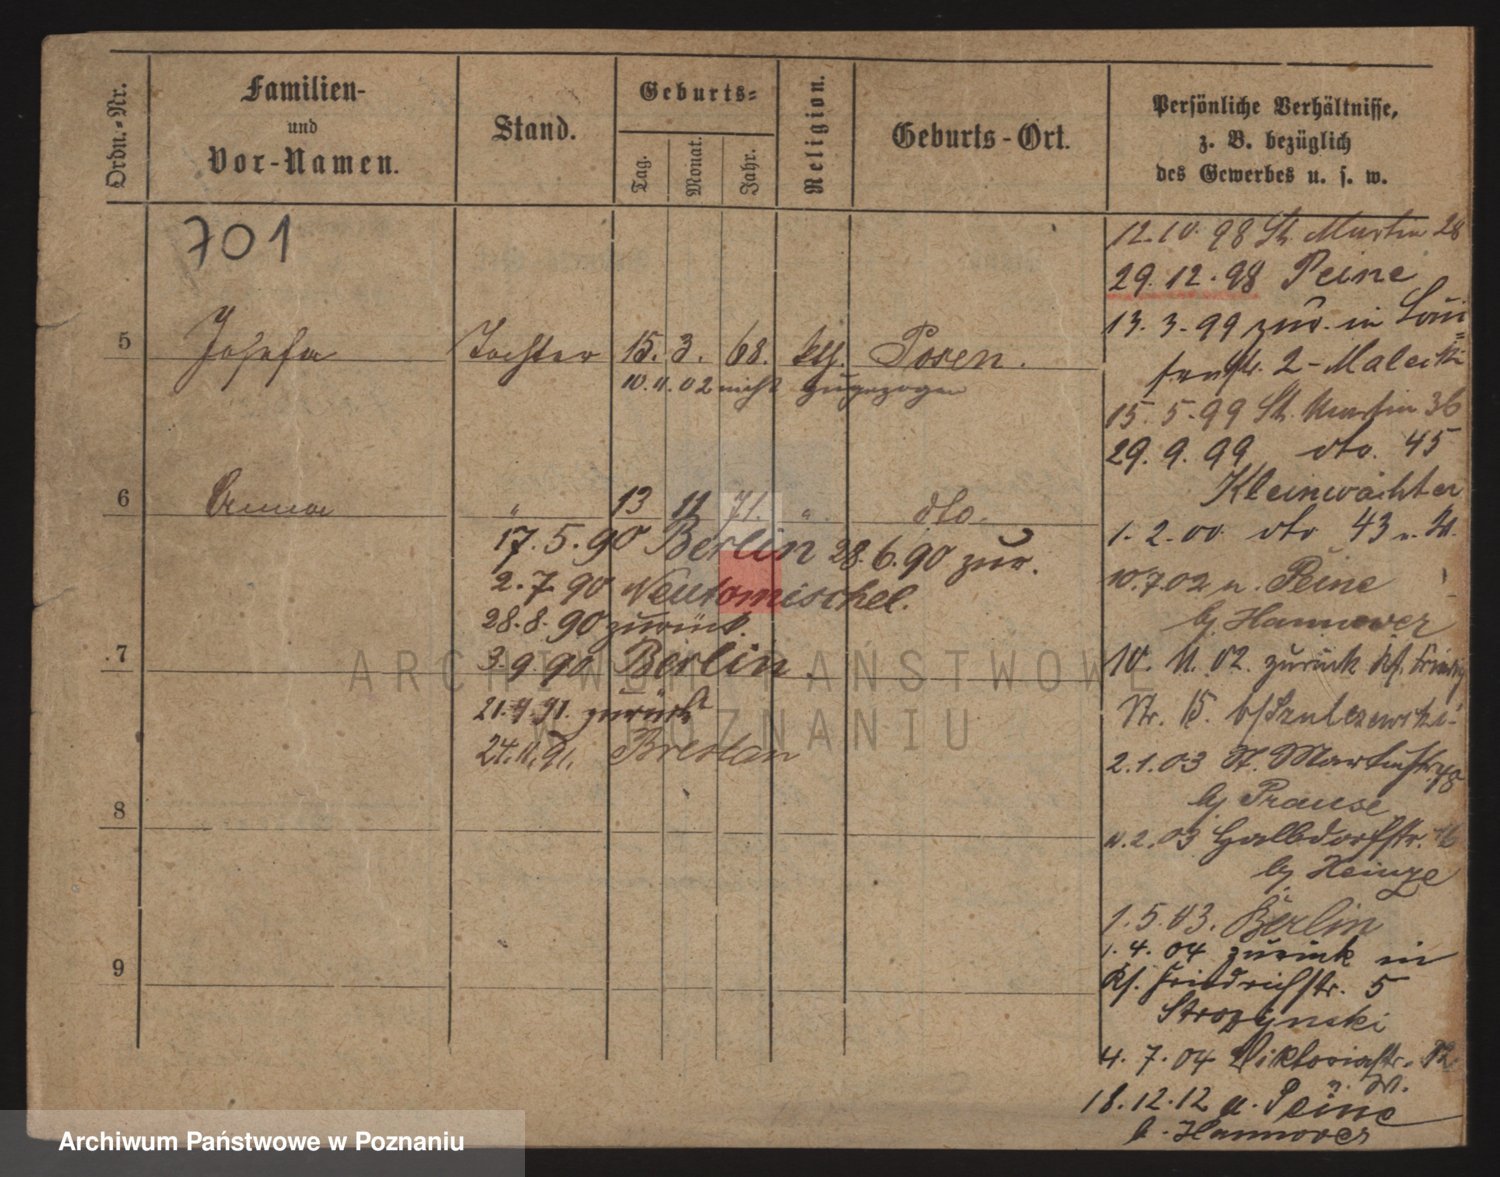 Ordn.-Nr.
Familien-
und
Vor-Namen.
Stand.
Geburts-
Tag.
Monat.
Jahr.
Religion.
Geburts-Ort.
Persönliche Verhältnisse,
z. B. bezüglich
des Gewerbes u. s. w.
701
5 Josefa Tochter 15. 3. 68. kth. Posen.
10.11.02 nicht zugezogen
6 Anna " 13 11 71. " dto.
17.5.90 Berlin 28.6.90 zur.
2.7.90 Neutomischel.
28.8.90 zurück.
7
3.9.90 Berlin.
21.9.91. zurück
24.11.91. Breslau
8
9
12.10.98 St. Martin 28
29.12.98 Peine
13.3.99 zur. in Loui=
senstr. 2 - Malecki
15.5.99 St. Martin 36
29.9.99 dto. 45
Kleinwächter
1.2.00 dto 43 n. W.
10.7.02 n. Peine
bj Hannover
10.11.02. zurück Kf. Friedr
Str. 15. b/Szulczewski
2.1.03 St. Martinstr. 48
bj Prause
11.2.03 Halbdorfstr. 16
bj Heinze
1.5.03. Berlin
1.4.04 zurück in
Kf. Friedrichstr. 5
Strozynski
4.7.04 Viktoriastr. 12
n. W.
18.12.12 n. Peine
b. Hannover
ARCHIWUM PAŃSTWOWE
W POZNANIU
Archiwum Państwowe w Poznaniu